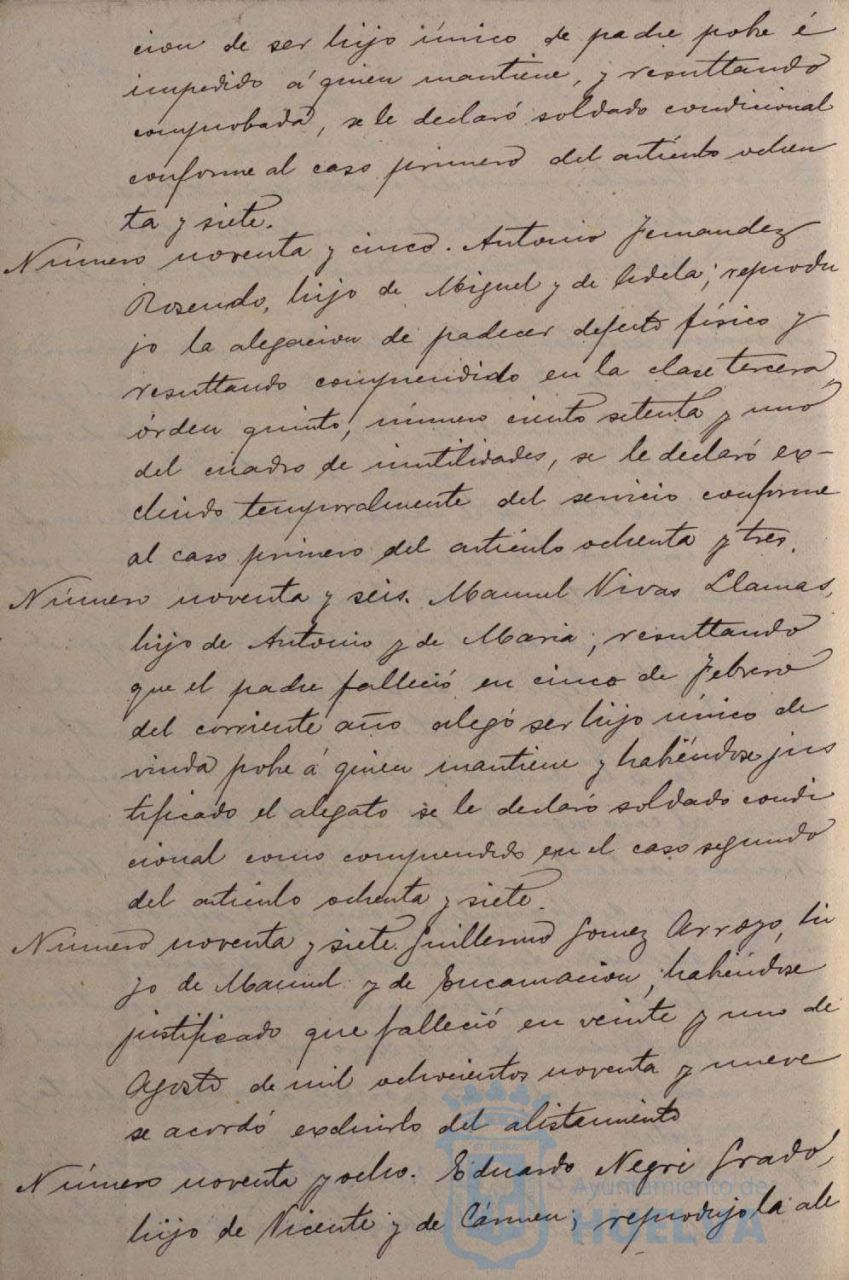 cion de ser hijo único de padre pobre é
impedido á quien mantiene, y resultando
comprobada, se le declaró soldado condicional
conforme al caso primero del artículo ochen
ta y siete.
Número noventa y cinco. Antonio Fernandez
Rosendo, hijo de Miguel y de Adela; reprodu
jo la alegacion de padecer defecto físico y
resultando comprendido en la clase tercera,
órden quinto, número ciento setenta y uno
del cuadro de inutilidades, se le declaró ex-
cluido temporalmente del servicio conforme
al caso primero del artículo ochenta y tres.
Número noventa y seis. Manuel Vivas Llamas,
hijo de Antonio y de Maria; resultando
que el padre falleció en cinco de Febrero
del corriente año alegó ser hijo único de
viuda pobre á quien mantiene y habiéndose jus
tificado el alegato se le declaró soldado condi
cional como comprendido en el caso segundo
del artículo ochenta y siete.
Número noventa y siete. Guillermo Gomez Arroyo, hi
jo de Manuel y de Encarnacion; habiéndose
justificado que falleció en veinte y uno de
Agosto de mil ochocientos noventa y nueve
se acordó excluirlo del alistamiento
Número noventa y ocho. Eduardo Negri Grado,
hijo de Vicente y de Cármen; reprodujo la ale
Ayuntamiento de
HUELVA